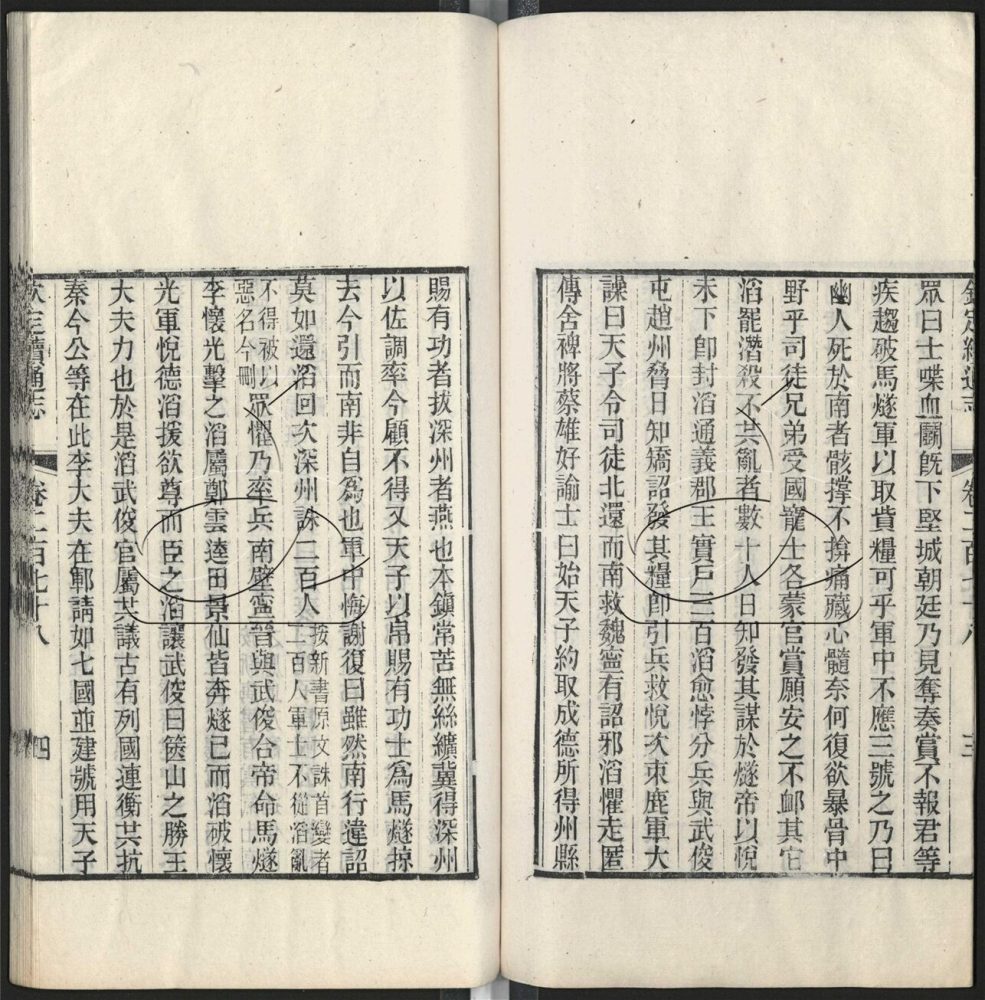 欽定續通志 卷二百七十八 三
眾曰士喋血鬭旣下堅城朝廷乃見奪奏賞不報君等
疾趨破馬燧軍以取貲糧可乎軍中不應三號之乃曰
幽人死於南者骸撐不揜痛藏心髓奈何復欲暴骨中
野乎司徒兄弟受國寵士各蒙官賞願安之不䘏其它
滔罷潛殺不共亂者數十人日知發其謀於燧帝以悅
未下卽封滔通義郡王實戶三百滔愈悖分兵與武俊
屯趙州脅日知矯詔發其糧卽引兵救悅次束鹿軍大
譟曰天子令司徒北還而南救魏寧有詔邪滔懼走匿
傳舍裨將蔡雄好諭士曰始天子約取成德所得州縣
賜有功者拔深州者燕也本鎮常苦無絲纊冀得深州
以佐調率今顧不得又天子以帛賜有功士爲馬燧掠
去今引而南非自爲也軍中悔謝復曰雖然南行違詔
莫如還滔回次深州誅二百人
按新書原文誅首變者
二百人軍士不從滔亂
不得被以
惡名今刪
眾懼乃率兵南壁寧晉與武俊合帝命馬燧
李懷光擊之滔屬鄭雲逵田景仙皆奔燧已而滔破懷
光軍悅德滔援欲尊而臣之滔讓武俊曰篋山之勝王
大夫力也於是滔武俊官屬共議古有列國連衡共抗
秦今公等在此李大夫在鄆請如七國並建號用天子
欽定續通志 卷二百七十八 四